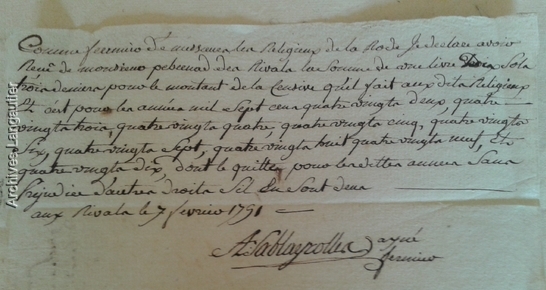 Comme fermier de messieurs les Religieux de la Rode Je declare avoir
Reçu de monsieur pebernad des Rivals la somme de une livre Deux Sols
trois deniers pour le montant de la Censive qu'il fait aux dits Religieux
Et c'est pour les années mil Sept cens quatre vingts deux, quatre
vingts trois quatre vingts quatre, quatre vingts cinq, quatre vingts
Six, quatre vingts Sept, quatre vingts huit quatre vingts neuf, et
quatre vingts dix, dont le quitte pour lesdittes années Sans
Prejudice d'autres droits Sil En Sont deus
aux Rivals le 7 fevrier 1791
A. Sablayrolles ayné
fermier
Archives Largautier